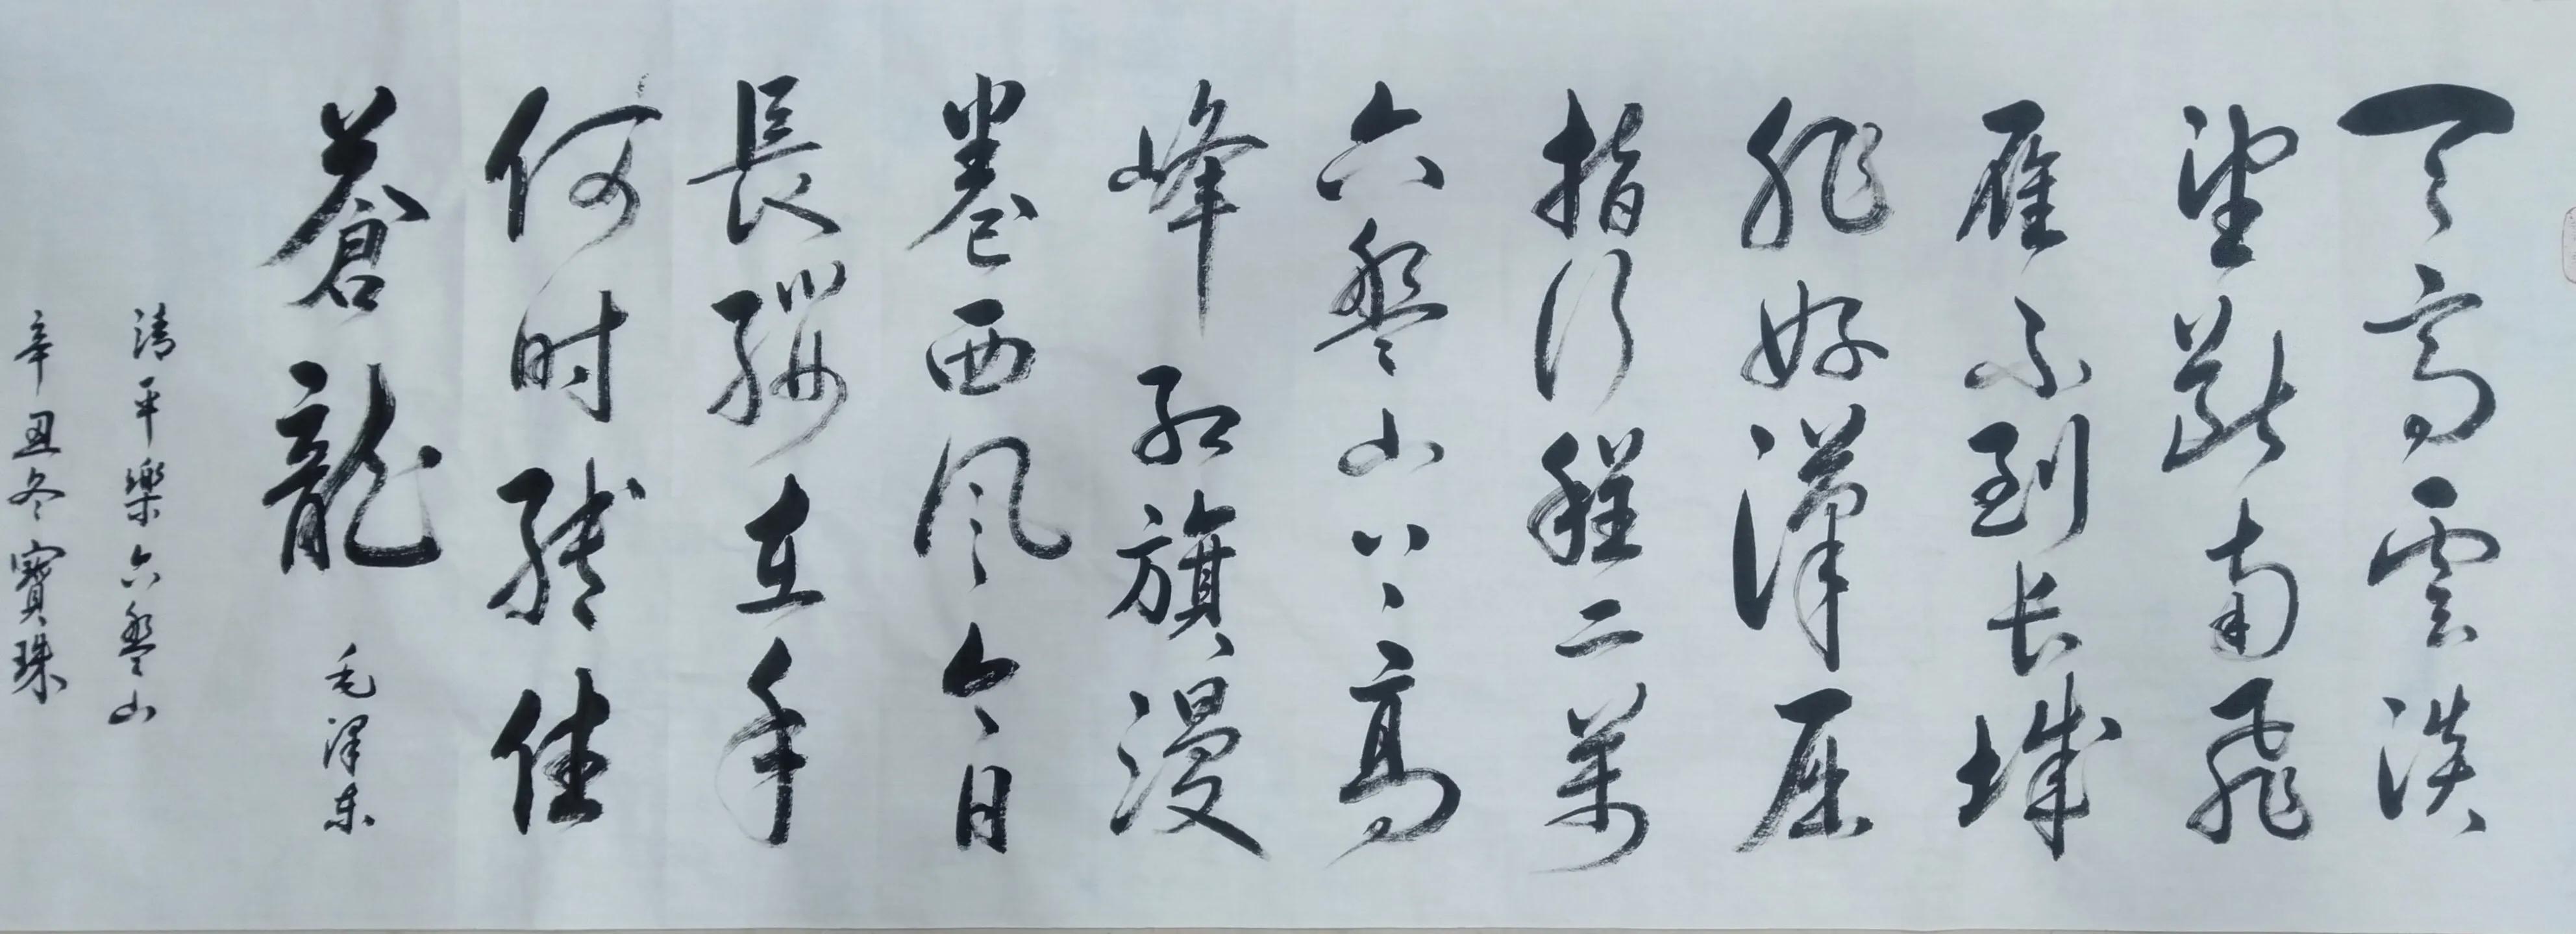 天高雲淡
望斷南飛
雁不到长城
非好漢屈
指行程二萬
六盤山上高
峰红旗漫
卷西风今日
長纓在手
何时缚住
蒼龍
毛泽东
清平樂六盤山
辛丑冬寶珠